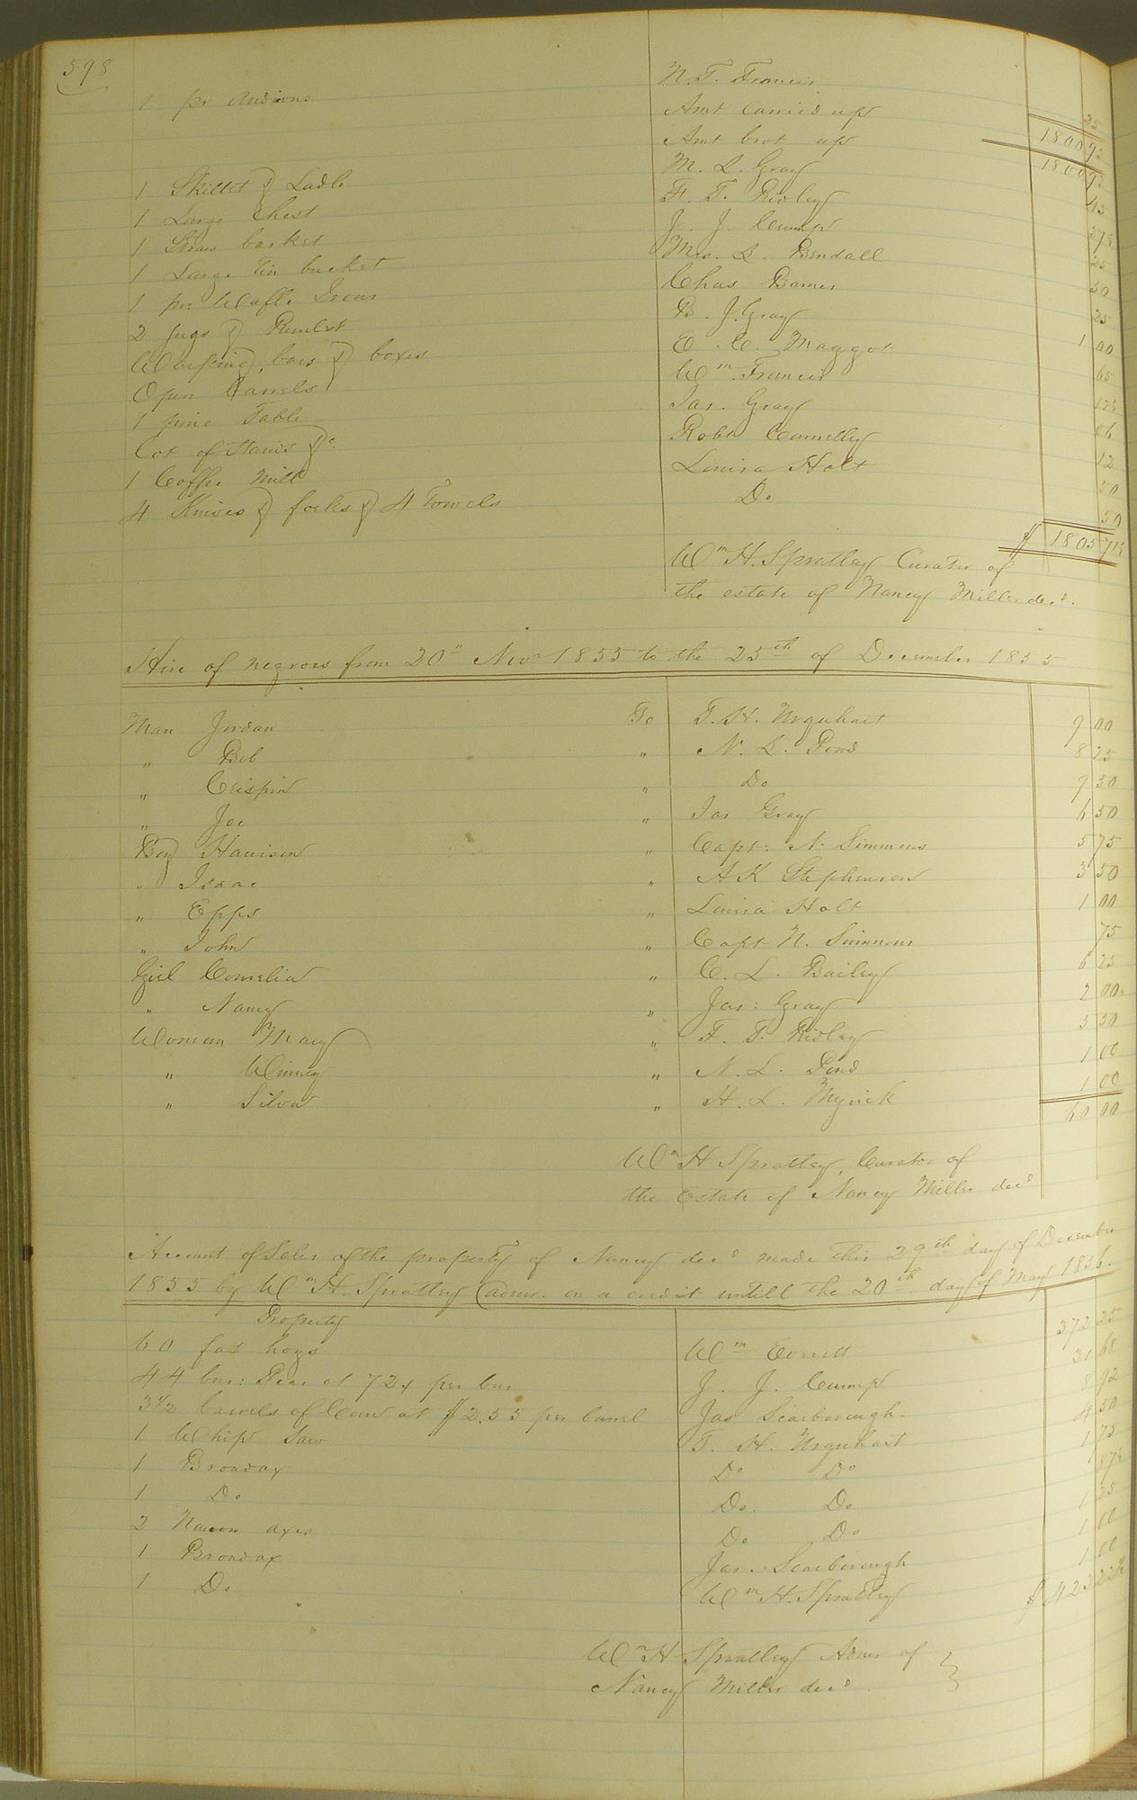 598
1 pr Andirons N. T. Francis 25
Amt carried up 1800 92
Amt brot up 1800 92
1 Skillet & Ladle M. L. Gray 45
1 Large Chest F. T. Ridley 2 7½
1 Straw basket J. J. Crump 25
1 Large Tin bucket Mrs. L. Bendall 50
1 pr: Waffle Irons Chas Barnes 25
2 jugs & Rundlet B. J. Gray 1 00
bars & boxes E. C. Maggot 65
Open barrels Wm Francis 12½
1 pine Table Jas. Gray 06
Lot of Staves &c Robt Connelly 12
1 Coffee Mill Louisa Holt 50
4 Knives & forks & 4 Towels Do 50
$ 1805 71½
Wm H. Spratley Curator of
the estate of Nancy Miller decd.
Hire of negroes from 20" Nov 1855 to the 25th of December 1855
Man Jordan To T. H. Urquhart 9 00
" Bob " N. L. Pond 8 25
" Crispin " Do 9 50
" Joe " Jas Gray 6 50
Boy Harrison " Capt: N. Simmons 5 75
" Isaac " A K Stephenson 3 50
" Epps " Louisa Holt 1 00
" John " Capt N. Simmons 75
Girl Cornelia " C. L. Bailey 6 25
" Nancy " Jas: Gray 2 00
Woman Mary " F. T. Ridley 5 50
" Winney " N. L. Pond 1 00
" Silva " H. L. Myrick 1 00
60 00
Wm H Spratley, Curator of
the Estate of Nancy Miller decd
Account of Sales of the property of Nancy decd made this 29th day of December
1855 by Wm H. Spratley admr. on a credit untill the 20th day of May 1856.
Property
60 fat hogs Wm Everett 372 25
44 bus: Peas at 72¢ per bus J. J. Crump 31 68
3½ barrels of Corn at $2.55 per barrel Jas Scarborough 8 92
1 Whip Saw T. H. Urquhart 4 50
1 Broadax Do Do 1 75
1 Do Do. Do 87½
2 Narrow axes Do Do 1 25
1 Broadax Jas. Scarborough 1 00
1 Do Wm H. Spratley 1 00
$ 423 22½
Wm H Spratley Admr of
Nancy Miller decd